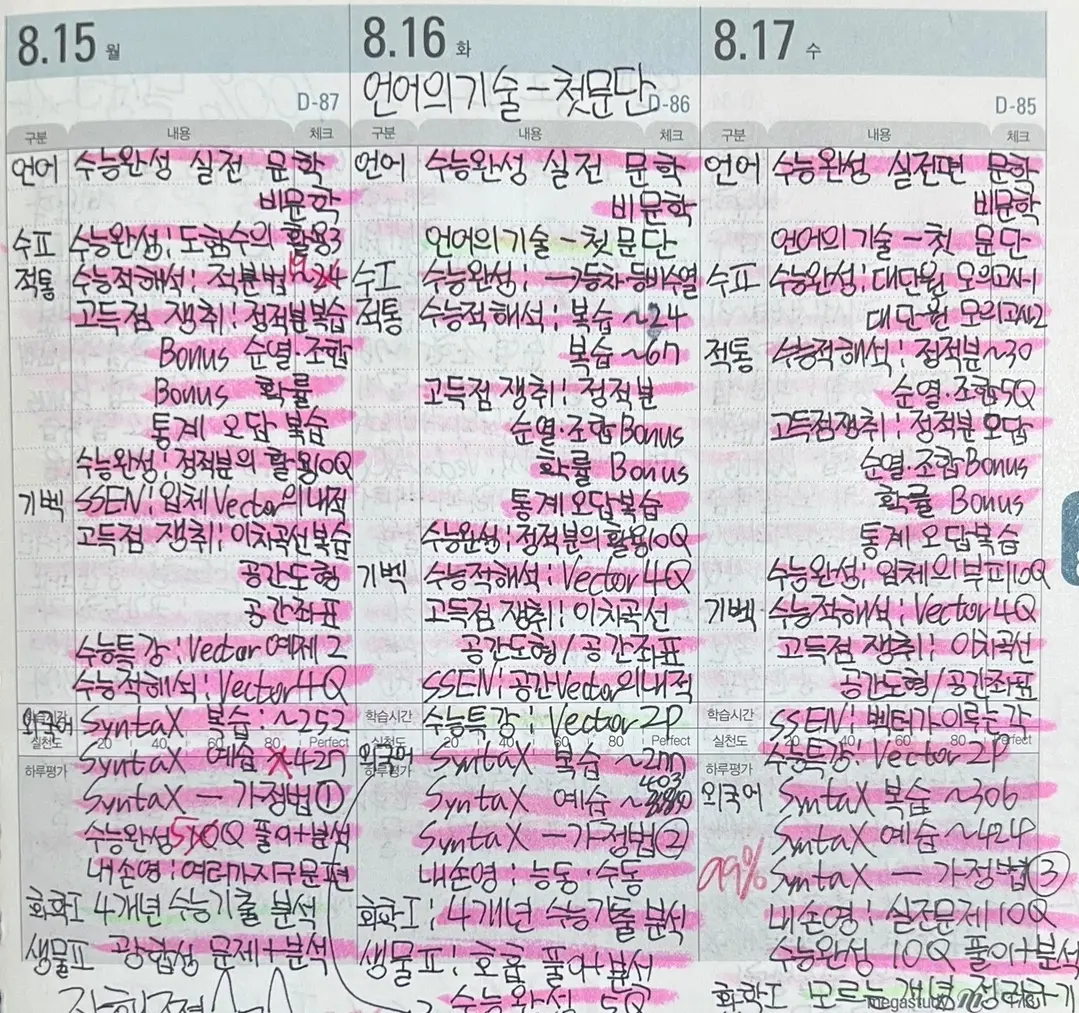 8.15 월
D-87
구분 내용 체크
언어 수능완성 실전 문학
비문학
수표 수능완성; 도함수의 활용3
적통 수능적해석; 적분법
고득점 쟁취; 정적분복습
Bonus 순열·조합
Bonus 확률
통계 오답 복습
수능완성; 정적분의 활용10Q
기벡 SSEN; 입체 Vector의내적
고득점 쟁취; 이차곡선복습
공간도형
공간좌표
수능특강; Vector 예제 2
수능적해석; Vector4Q
학습시간
외국어 SyntaX 복습; ~252
실천도 20 40 60 80 Perfect
SyntaX 예습 ~427
하루평가
SyntaX — 가정법①
수능완성 Q 풀이+분석
내손영; 여러가지구문편
화학I 4개년 수능기출 분석
생물II 광합성 문제+분석
8.16 화
언어의기술-첫문단
D-86
구분 내용 체크
언어 수능완성 실전 문학
비문학
언어의기술-첫문단
수II 수능완성; →등차·등비수열
적통 수능적해석; 복습 ~24
복습 ~67
고득점 쟁취; 정적분
순열·조합 Bonus
확률 Bonus
통계오답복습
수능완성; 정적분의 활용10Q
기벡 수능적해석; Vector4Q
고득점 쟁취; 이차곡선
공간도형/공간좌표
SSEN; 공간Vector의내적
학습시간
수능특강; Vector 2P
실천도 20 40 60 80 Perfect
외국어 SyntaX 복습 ~277
하루평가
403
SyntaX 예습 ~
SyntaX —가정법②
내손영; 능동·수동
화학I; 4개년 수능기출 분석
생물II; 호흡 풀이+분석
수능완성 5Q
8.17 수
D-85
구분 내용 체크
언어 수능완성 실전편 문학
비문학
언어의기술-첫 문단
수II 수능완성; 대단원 모의고사1
대단원 모의고사2
적통 수능적해석; 정적분~30
순열·조합5Q
고득점쟁취; 정적분오답
순열·조합Bonus
확률 Bonus
통계오답복습
수능완성; 입체의부피10Q
기벡 수능적해석; Vector4Q
고득점 쟁취; 이차곡선
공간도형/공간좌표
학습시간
SSEN; 벡터가 이루는각
실천도 20 40 60 80 Perfect
수능특강; Vector 2P
하루평가
외국어 SyntaX 복습 ~306
SyntaX 예습 ~424
99% SyntaX — 가정법③
내손영; 실전문제10Q
수능완성 10Q 풀이+분석
화학I 모르는개념 정리하기
megastudy